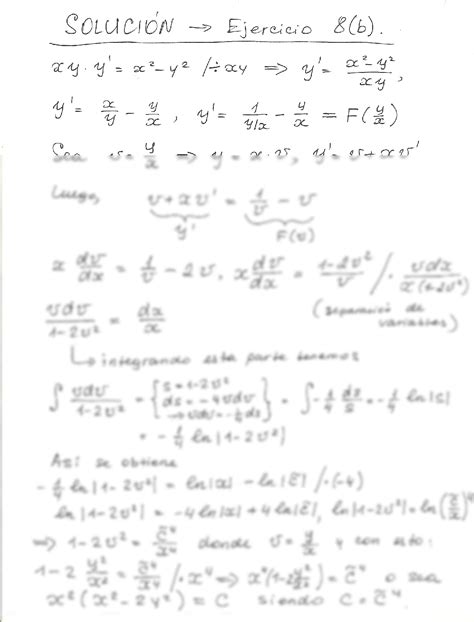 SOLUCIÓN → Ejercicio 8(b).
xy·y' = x²-y² /÷xy ⇒ y' = (x²-y²)/(xy),
y' = x/y - y/x , y' = 1/(y/x) - y/x = F(y/x)
Sea v = y/x → y = x·v, y' = v+xv'
Luego, v+xv' = 1/v - v
y' F(v)
x dv/dx = 1/v - 2v, x dv/dx = (1-2v²)/v /· vdx/(x(1-2v²))
vdv/(1-2v²) = dx/x (separación de variables)
↳ integrando esta parte tenemos
∫ vdv/(1-2v²) = {s=1-2v² ds=-4vdv → vdv=-¼ds} = ∫-¼ ds/s = -¼ ln|s|
= -¼ ln|1-2v²|
Así se obtiene
-¼ ln|1-2v²| = ln|x| - ln|c̃| /·(-4)
ln|1-2v²| = -4ln|x|+4ln|c̃|, ln|1-2v²| = ln(c̃/x)⁴
⇒ 1-2v² = c̃⁴/x⁴ donde v = y/x y con esto:
1-2 y²/x² = c̃⁴/x⁴ /·x⁴ ⇒ x⁴(1-2y²/x²) = c̃⁴ o sea
x²(x²-2y²) = C siendo C = c̃⁴